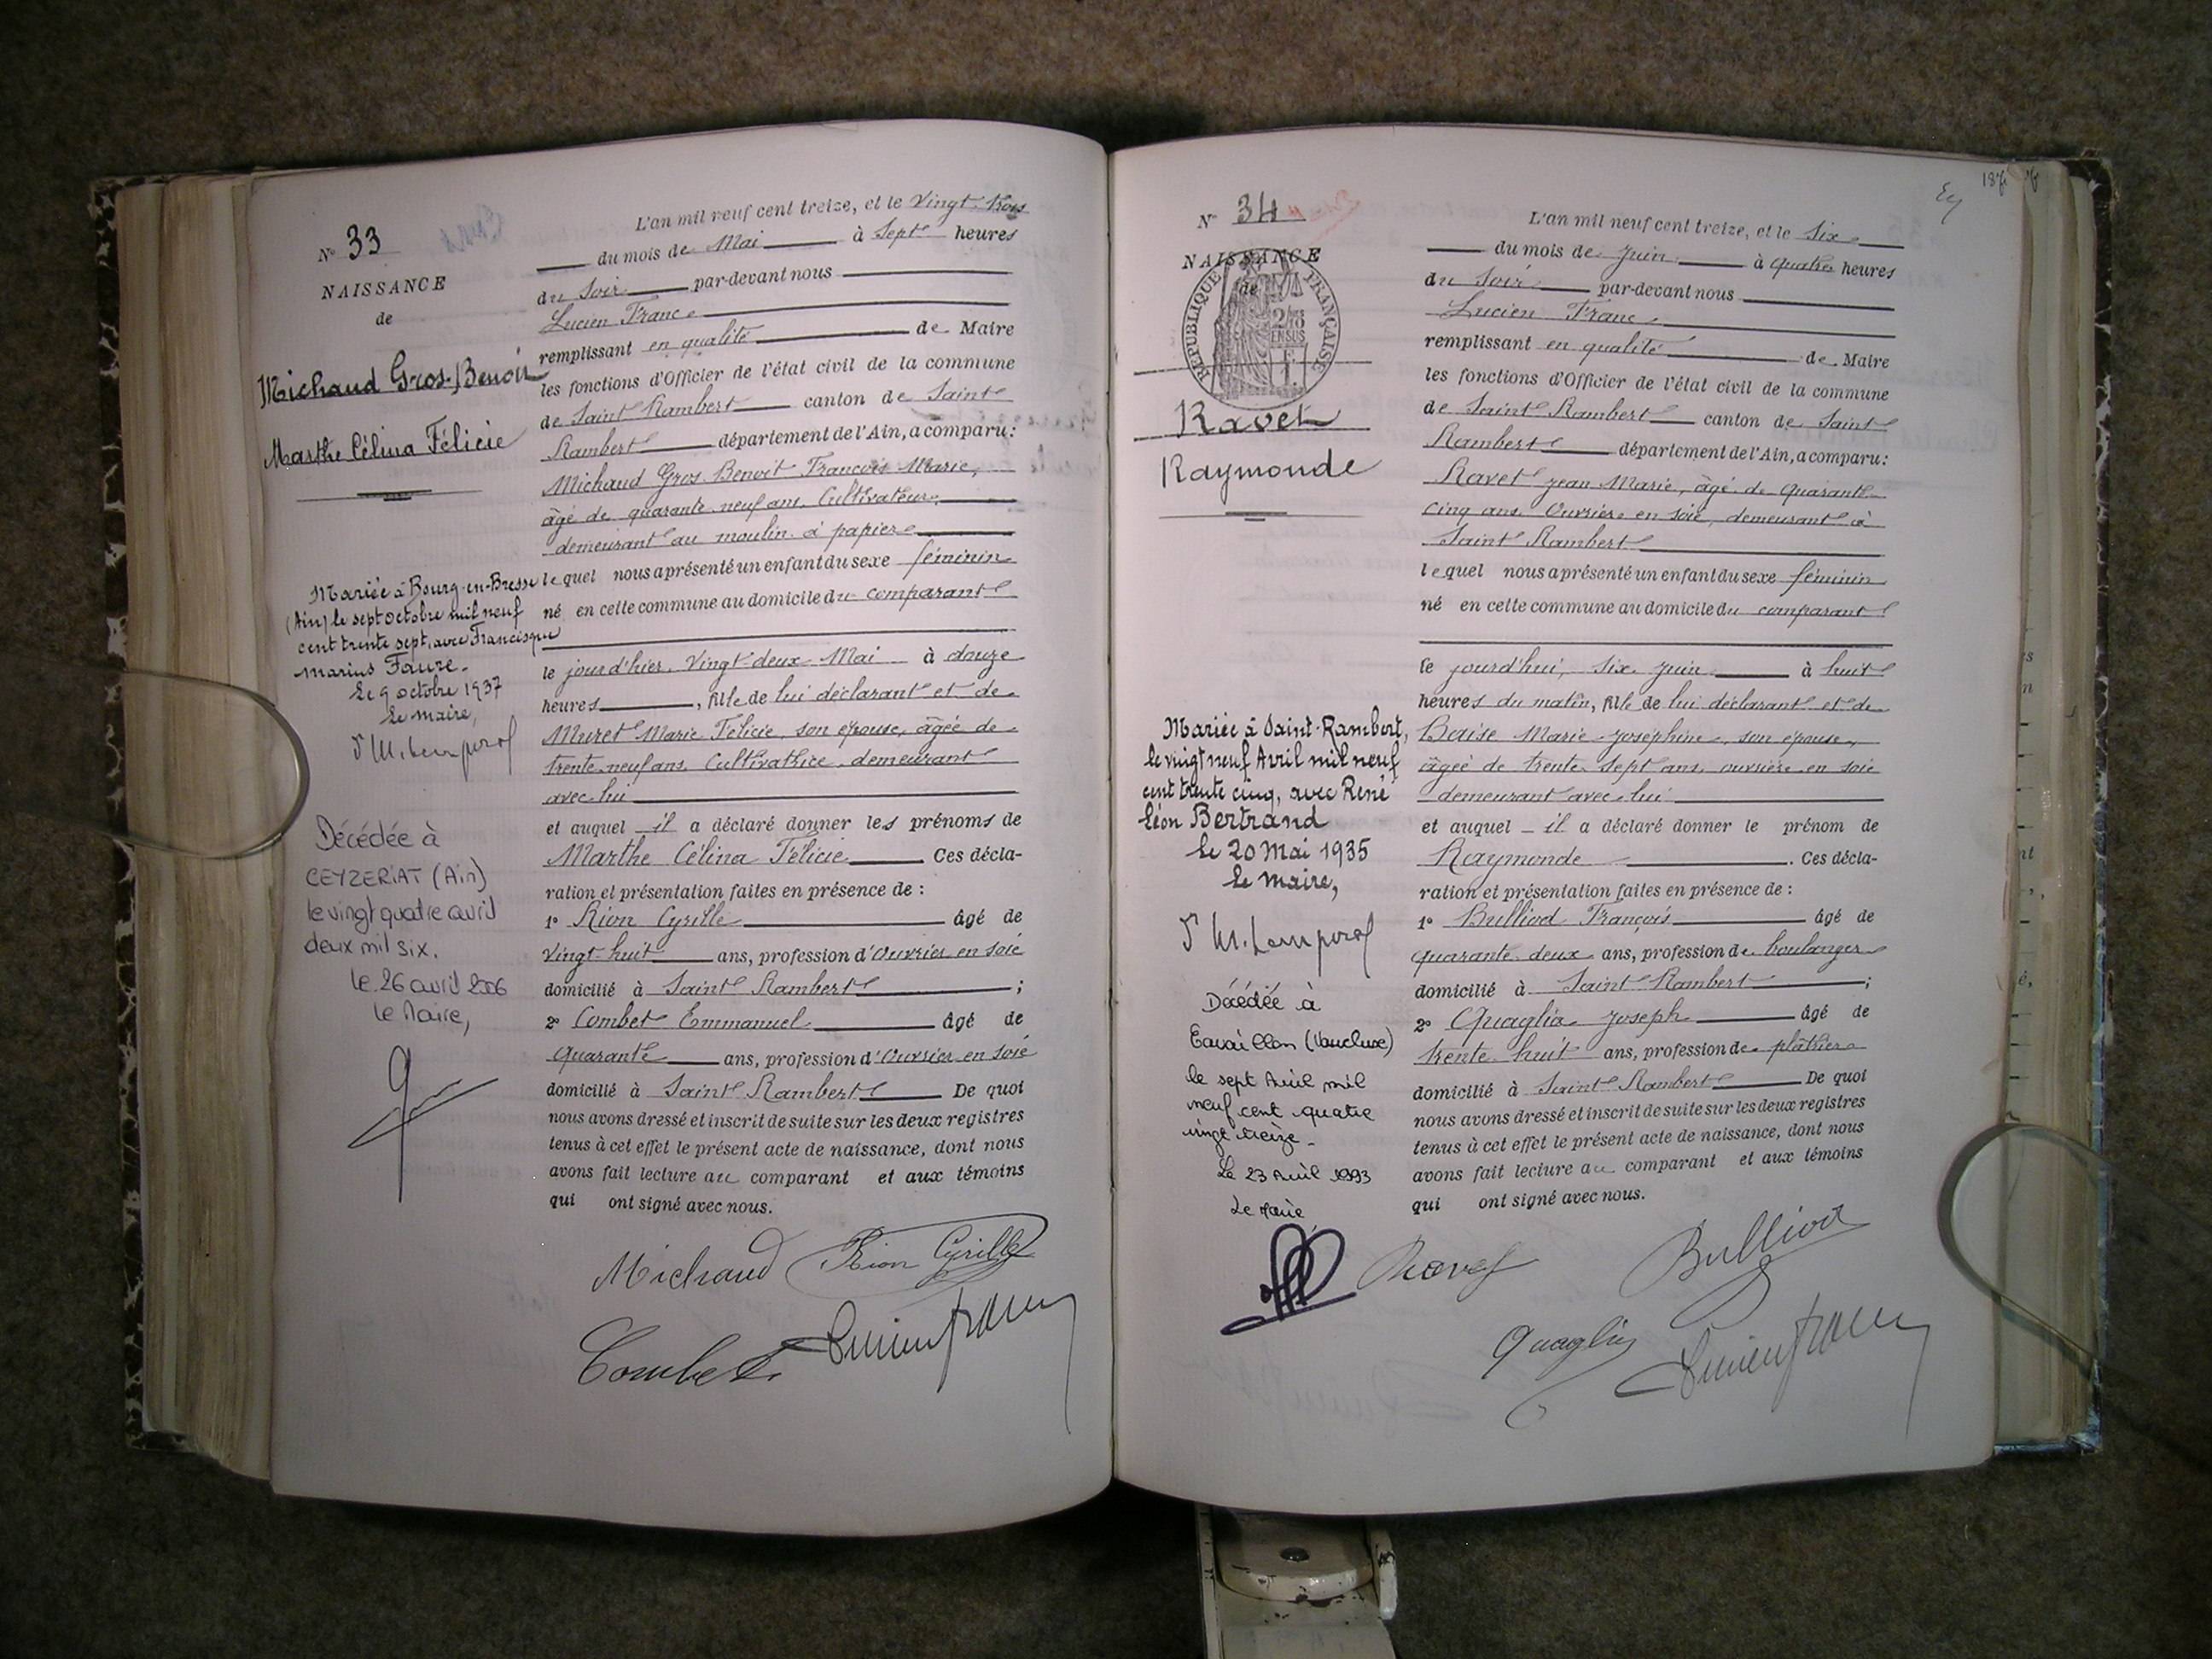 N° 33
NAISSANCE
de
Michaud Gros-Benoit
Marthe Célina Félicie
Mariée à Bourg-en-Bresse
(Ain) le sept octobre mil neuf
cent trente sept, avec Francisque
Marius Faure.
Le 9 octobre 1937
Le maire,
Décédée à
CEYZERIAT (Ain)
le vingt quatre avril
deux mil six.
le 26 avril 2006
le Maire,
L'an mil neuf cent treize, et le Vingt-trois
du mois de Mai à Sept heures
du Soir par-devant nous
Lucien Franc
remplissant en qualité de Maire
les fonctions d'Officier de l'état civil de la commune
de Saint Rambert canton de Saint
Rambert département de l'Ain, a comparu:
Michaud Gros-Benoit François Marie,
âgé de quarante-neuf ans, Cultivateur,
demeurant au moulin à papier
lequel nous a présenté un enfant du sexe féminin
né en cette commune au domicile du comparant
le jour d'hier, Vingt-deux Mai à douze
heures, fille de lui déclarant et de
Muret Marie Félicie, son épouse, âgée de
trente-neuf ans, Cultivatrice, demeurant
avec lui
et auquel il a déclaré donner les prénoms de
Marthe Célina Félicie. Ces décla-
ration et présentation faites en présence de :
1° Rion Cyrille âgé de
Vingt-huit ans, profession d'Ouvrier en soie
domicilié à Saint Rambert ;
2° Combet Emmanuel âgé de
Quarante ans, profession d'Ouvrier en soie
domicilié à Saint Rambert De quoi
nous avons dressé et inscrit de suite sur les deux registres
tenus à cet effet le présent acte de naissance, dont nous
avons fait lecture au comparant et aux témoins
qui ont signé avec nous.
Michaud Rion Cyrille
Combet Lucien Franc
187
N° 34
NAISSANCE
de
RÉPUBLIQUE FRANÇAISE
Ravet
Raymonde
Mariée à Saint-Rambert,
le vingt neuf Avril mil neuf
cent trente cinq, avec René
Léon Bertrand
Le 20 Mai 1935
Le maire,
Décédée à
Cavaillon (Vaucluse)
le sept Avril mil
neuf cent quatre
vingt treize.
Le 23 Avril 1993
Le Maire
L'an mil neuf cent treize, et le Six
du mois de Juin à Quatre heures
du Soir par-devant nous
Lucien Franc
remplissant en qualité de Maire
les fonctions d'Officier de l'état civil de la commune
de Saint Rambert canton de Saint
Rambert département de l'Ain, a comparu:
Ravet Jean Marie, âgé de Quarante-
cinq ans, Ouvrier en soie, demeurant à
Saint Rambert
lequel nous a présenté un enfant du sexe féminin
né en cette commune au domicile du comparant
le jourd'hui, six Juin à huit
heures du matin, fille de lui déclarant et de
Baise Marie Joséphine, son épouse,
âgée de trente-sept ans, ouvrière en soie
demeurant avec lui
et auquel il a déclaré donner le prénom de
Raymonde. Ces décla-
ration et présentation faites en présence de :
1° Bulliod François âgé de
quarante-deux ans, profession de boulanger
domicilié à Saint Rambert ;
2° Quaglia Joseph âgé de
trente-huit ans, profession de plâtrier
domicilié à Saint Rambert De quoi
nous avons dressé et inscrit de suite sur les deux registres
tenus à cet effet le présent acte de naissance, dont nous
avons fait lecture au comparant et aux témoins
qui ont signé avec nous.
Ravet Bulliod
Quaglia Lucien Franc